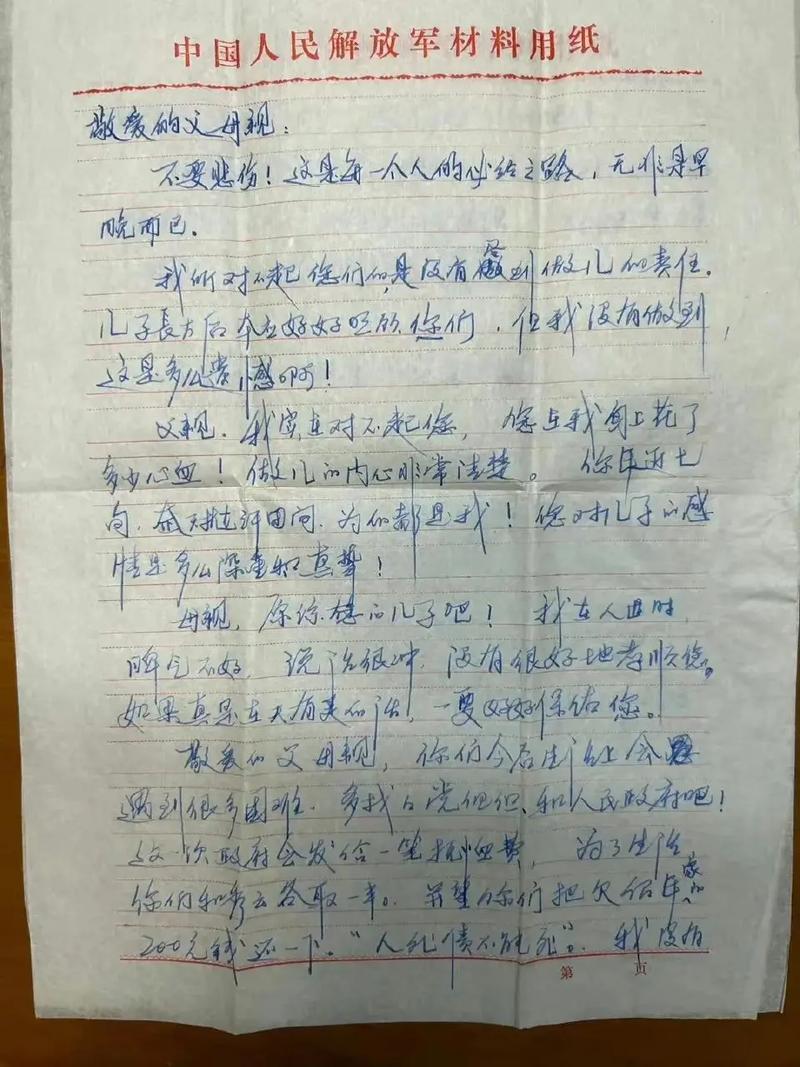 中国人民解放军材料用纸
敬爱的父母亲：
不要悲伤！这是每一个人的必经之路，无非是早
晚而已。
我所对不起您们的，是没有尽到做儿的责任。
儿子长大后本应好好照顾您们，但我没有做到，
这是多么遗憾啊！
父亲，我实在对不起您，您在我身上花了
多少心血！做儿的内心非常清楚。你年近七
旬，奋战在田间，为的都是我！您对儿子的感
情是多么深重和真挚！
母亲，原谅您的儿子吧！我在人世时，
脾气不好，说话很冲，没有很好地孝顺您。
如果真是在天有灵的话，一定要好好保佑您。
敬爱的父母亲，你们今后生活上会
遇到很多困难，多找党组织和人民政府吧！
这次政府会发给一笔抚恤费，为了生活，
你们和各取一半。希望你们把欠信用家的
200元钱还一下。“人死债不能死”。我没有
第 页